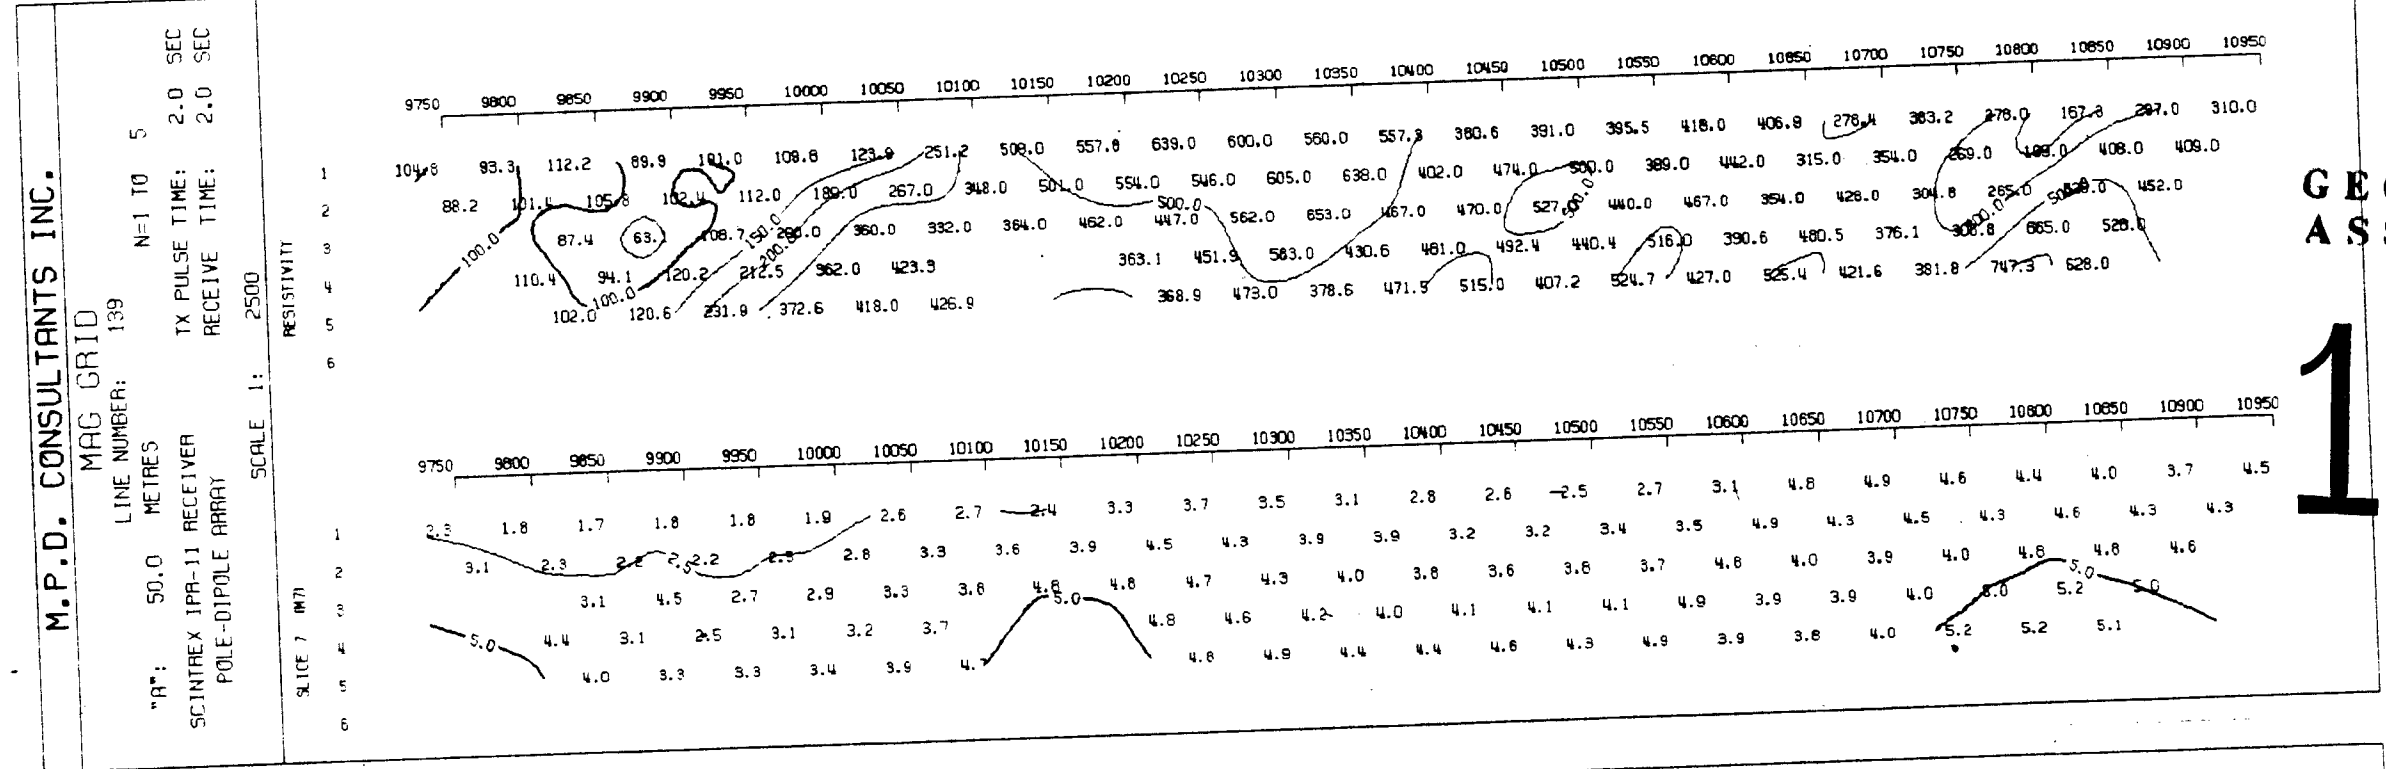 M.P.D. CONSULTANTS INC.
MAG GRID
LINE NUMBER: 139 N=1 TO 5
"A": 50.0 METRES
SCINTREX IPR-11 RECEIVER TX PULSE TIME: 2.0 SEC
POLE-DIPOLE ARRAY RECEIVE TIME: 2.0 SEC
SCALE 1: 2500
RESISTIVITY
9750 9800 9850 9900 9950 10000 10050 10100 10150 10200 10250 10300 10350 10400 10450 10500 10550 10600 10650 10700 10750 10800 10850 10900 10950
1 104.8 93.3 112.2 89.9 101.0 109.8 123.9 251.2 508.0 557.8 639.0 600.0 560.0 557.3 380.6 391.0 395.5 418.0 406.9 278.4 383.2 278.0 167.3 297.0 310.0
2 88.2 101.4 105.8 102.4 112.0 189.0 267.0 348.0 501.0 554.0 546.0 605.0 638.0 402.0 474.0 500.0 389.0 442.0 315.0 354.0 269.0 408.0 409.0
3 87.4 108.7 360.0 332.0 364.0 462.0 447.0 562.0 653.0 467.0 470.0 527. 440.0 467.0 354.0 428.0 304.8 265.0 452.0
4 110.4 94.1 120.2 212.5 362.0 423.9 363.1 451.9 583.0 430.6 461.0 492.4 440.4 516.0 390.6 480.5 376.1 665.0 528.0
5 102.0 120.6 231.9 372.6 418.0 426.9 368.9 473.0 378.6 471.9 515.0 407.2 524.7 427.0 525.4 421.6 381.8 747.3 628.0
6
100.0 100.0 150.0 200.0 500.0 500.0
SLICE 7 (M7)
9750 9800 9850 9900 9950 10000 10050 10100 10150 10200 10250 10300 10350 10400 10450 10500 10550 10600 10650 10700 10750 10800 10850 10900 10950
1 2.3 1.8 1.7 1.8 1.8 1.9 2.6 2.7 2.4 3.3 3.7 3.5 3.1 2.8 2.6 2.5 2.7 3.1 4.8 4.9 4.6 4.4 4.0 3.7 4.5
2 3.1 2.3 2.2 2.2 2.5 2.8 3.3 3.6 3.9 4.5 4.3 3.9 3.9 3.2 3.2 3.4 3.5 4.9 4.3 4.5 4.3 4.6 4.3 4.3
3 3.1 4.5 2.7 2.9 3.3 3.8 4.8 4.8 4.7 4.3 4.0 3.8 3.6 3.8 3.7 4.8 4.0 3.9 4.0 4.8 4.8 4.6
4 4.4 3.1 2.5 3.1 3.2 3.7 4.8 4.6 4.2 4.0 4.1 4.1 4.1 4.9 3.9 3.9 4.0 5.0 5.2 5.0
5 4.0 3.3 3.3 3.4 3.9 4.8 4.9 4.4 4.4 4.6 4.3 4.9 3.9 3.8 4.0 5.2 5.2 5.1
6
5.0 2.5 5.0 5.0
1